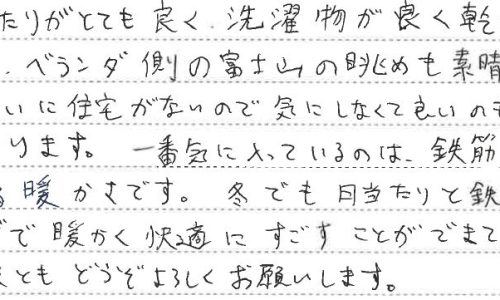 たりがとても良く、洗濯物が良く乾
、ベランダ側の富士山の眺めも素晴
いに住宅がないので気にしなくて良いのも
ります。一番気に入っているのは、鉄筋
る暖かさです。冬でも日当たりと鉄
で暖かく快適にすごすことができて
ともどうぞよろしくお願いします。